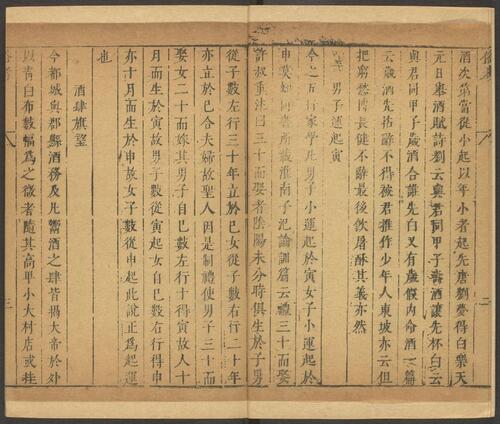 俗考
二
酒次第當從小起以年小者起先唐劉夢得白樂天
元日舉酒賦詩劉云與君同甲子壽酒讓先杯白云
與君同甲子歲酒合誰先白又有歲假內命酒一篇
云歲酒先拈辭不得被君推作少年人東坡亦云但
把窮愁博長健不辭最後飲屠酥其義亦然
男子運起寅
今之五行家學凡男子小運起於寅女子小運起於
申莫知何書所載淮南子氾論訓篇云禮三十而娶
許叔重注曰三十而娶者陰陽未分時俱生於子男
從子數左行三十年立於巳女從子數右行二十年
亦立於巳合夫婦故聖人因是制禮使男子三十而
娶女二十而嫁其男子自巳數左行十得寅故人十
月而生於寅故男子數從寅起女自巳數右行得申
亦十月而生於申故女子數從申起此說正為起運
也
酒肆旗望
今都城與郡縣酒務及凡鬻酒之肆皆揭大帘於外
以青白布數幅為之微者隨其高卑小大村店或挂
三